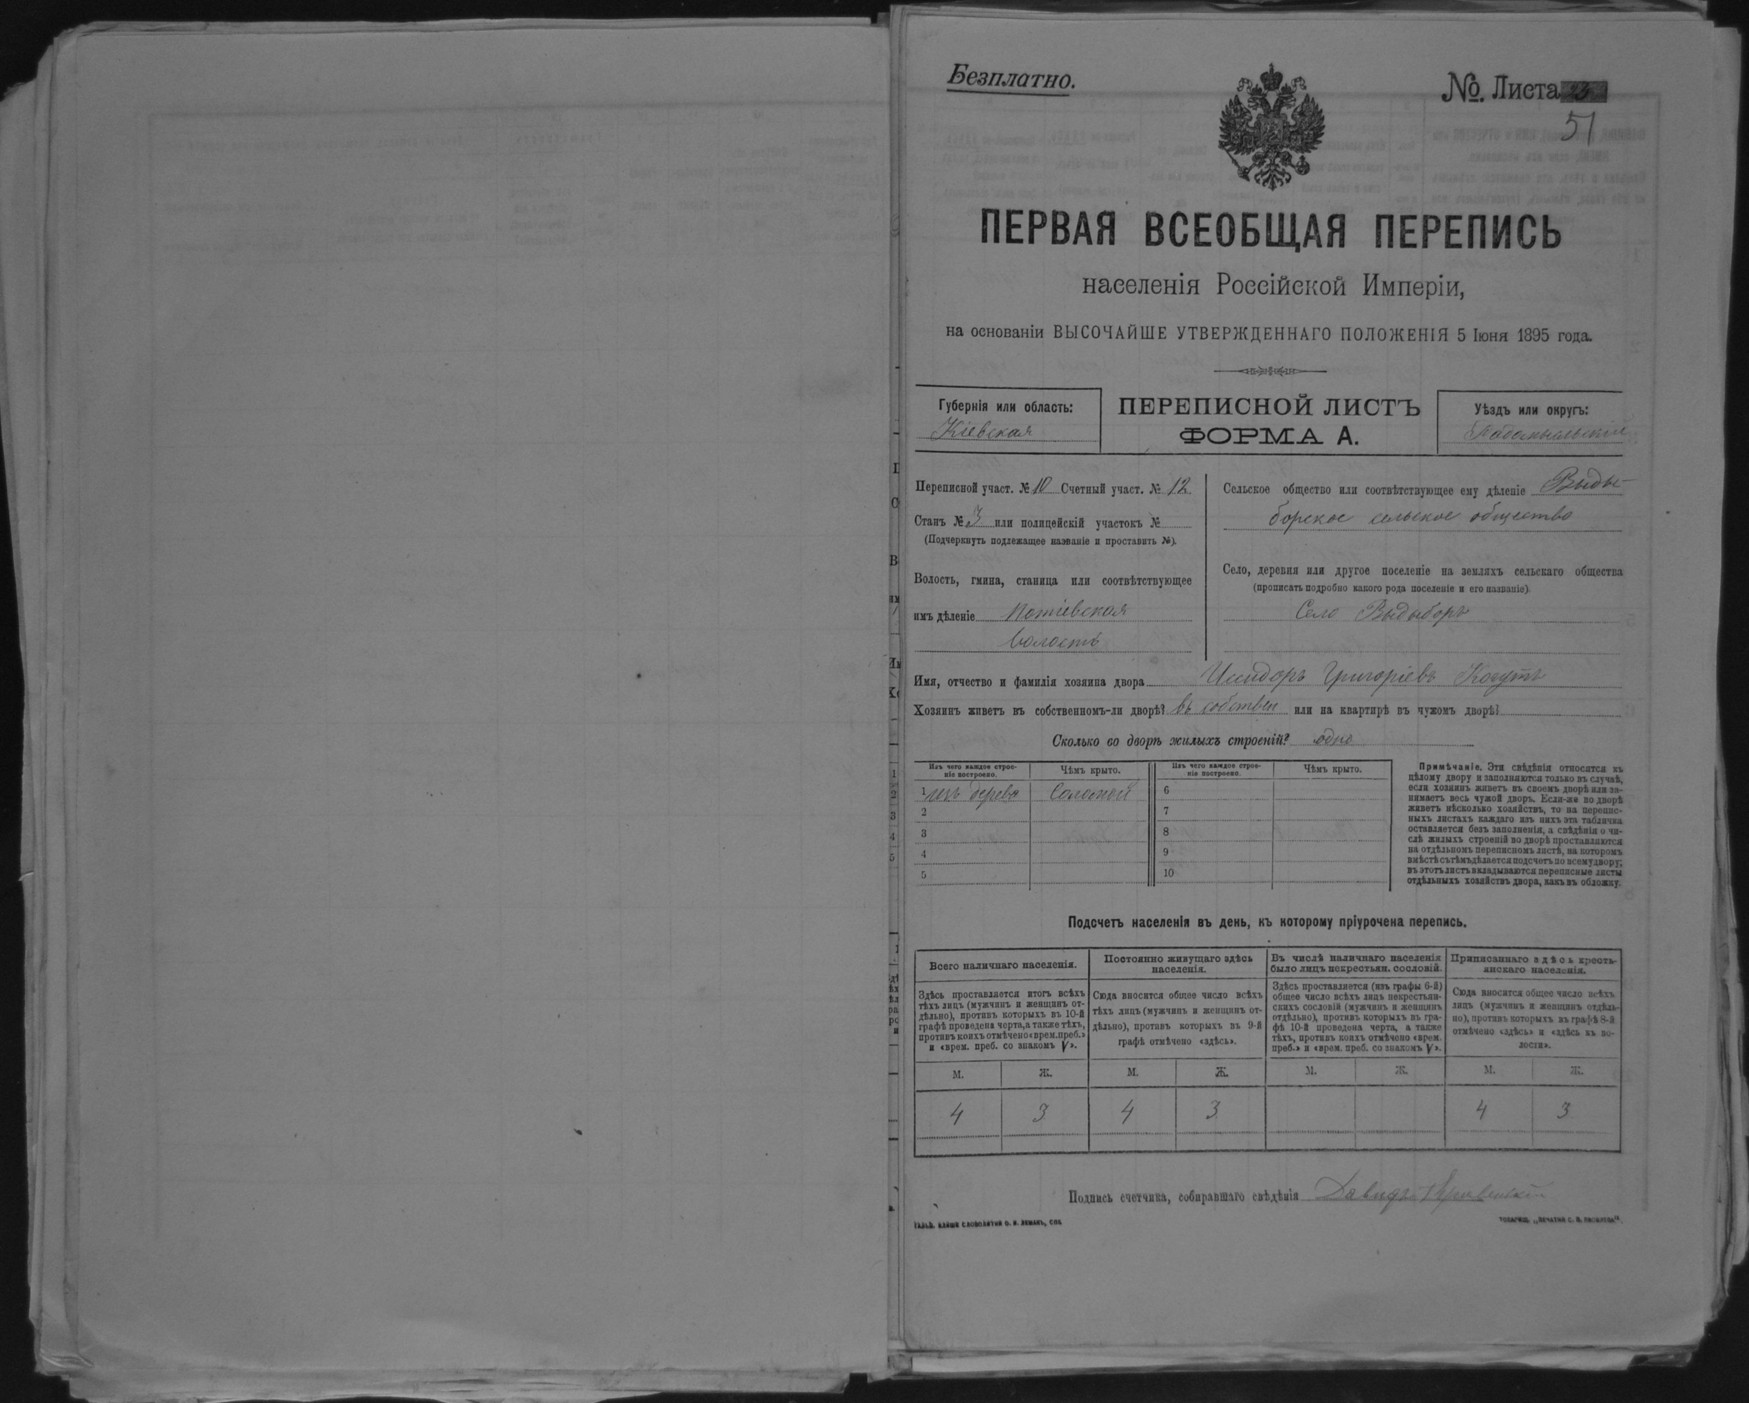 Безплатно.
№. Листа 23
51
ПЕРВАЯ ВСЕОБЩАЯ ПЕРЕПИСЬ
населенія Россійской Имперіи,
на основаніи ВЫСОЧАЙШЕ УТВЕРЖДЕННАГО ПОЛОЖЕНІЯ 5 Іюня 1895 года.
Губернія или область:
Кіевская
ПЕРЕПИСНОЙ ЛИСТЪ
ФОРМА А.
Уѣздъ или округъ:
Переписной участ. № 10 Счетный участ. № 12
Станъ № 3 или полицейскій участокъ №
(Подчеркнуть подлежащее названіе и проставить №).
Волость, гмина, станица или соотвѣтствующее
имъ дѣленіе Потіевская
волость
Сельское общество или соотвѣтствующее ему дѣленіе Выды-
борское сельское общество
Село, деревня или другое поселеніе на земляхъ сельскаго общества
(прописать подробно какого рода поселеніе и его названіе).
Село Выдыборъ
Имя, отчество и фамилія хозяина двора Исидоръ Григоріевъ Когутъ
Хозяинъ живетъ въ собственномъ-ли дворѣ? въ собствен или на квартирѣ въ чужомъ дворѣ?
Сколько во дворѣ жилыхъ строеній? одно
Изъ чего каждое строе-
ніе построено.
Чѣмъ крыто.
Изъ чего каждое строе-
ніе построено.
Чѣмъ крыто.
1 изъ дерева Соломой 6
2 7
3 8
4 9
5 10
Примѣчаніе. Эти свѣдѣнія относятся къ
цѣлому двору и заполняются только въ случаѣ,
если хозяинъ живетъ въ своемъ дворѣ или за-
нимаетъ весь чужой дворъ. Если-же во дворѣ
живетъ нѣсколько хозяйствъ, то на перепис-
ныхъ листахъ каждаго изъ нихъ эта табличка
оставляется безъ заполненія, а свѣдѣнія о чи-
слѣ жилыхъ строеній во дворѣ проставляются
на отдѣльномъ переписномъ листѣ, на которомъ
вмѣстѣ съ тѣмъ дѣлается подсчетъ по всему двору;
въ этотъ листъ вкладываются переписные листы
отдѣльныхъ хозяйствъ двора, какъ въ обложку.
Подсчетъ населенія въ день, къ которому пріурочена перепись.
Всего наличнаго населенія.
Постоянно живущаго здѣсь
населенія.
Въ числѣ наличнаго населенія
было лицъ некрестьян. сословій.
Приписаннаго здѣсь кресть-
янскаго населенія.
Здѣсь проставляется итогъ всѣхъ
тѣхъ лицъ (мужчинъ и женщинъ от-
дѣльно), противъ которыхъ въ 10-й
графѣ проведена черта, а также тѣхъ,
противъ коихъ отмѣчено «врем. преб.»
и «врем. преб. со знакомъ V».
Сюда вносится общее число всѣхъ
тѣхъ лицъ (мужчинъ и женщинъ от-
дѣльно), противъ которыхъ въ 9-й
графѣ отмѣчено «здѣсь».
Здѣсь проставляется (изъ графы 6-й)
общее число всѣхъ лицъ некрестьян-
скихъ сословій (мужчинъ и женщинъ
отдѣльно), противъ которыхъ въ гра-
фѣ 10-й проведена черта, а также
тѣхъ, противъ коихъ отмѣчено «врем.
преб.» и «врем. преб. со знакомъ V».
Сюда вносится общее число всѣхъ
лицъ (мужчинъ и женщинъ отдѣль-
но), противъ которыхъ въ графѣ 8-й
отмѣчено «здѣсь» и «здѣсь къ во-
лости».
М. Ж. М. Ж. М. Ж. М. Ж.
4 3 4 3 4 3
Подпись счетчика, собиравшаго свѣдѣнія Давидъ